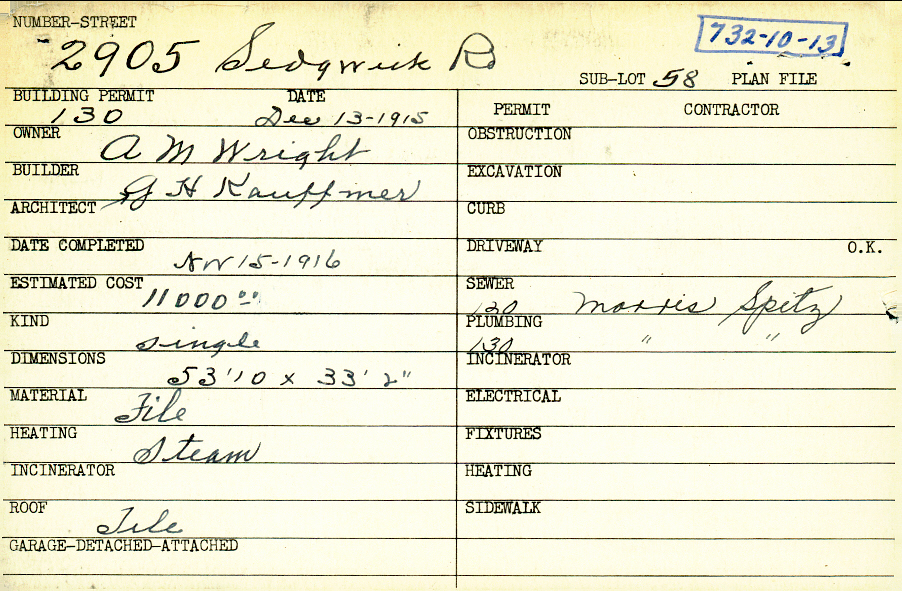 NUMBER-STREET
2905 Sedgwick Rd
732-10-13
SUB-LOT 58 PLAN FILE
BUILDING PERMIT DATE
130 Dec 13-1915
PERMIT CONTRACTOR
OWNER A M Wright
OBSTRUCTION
BUILDER G H Kauffmer
EXCAVATION
ARCHITECT
CURB
DATE COMPLETED Nov 15-1916
DRIVEWAY O.K.
ESTIMATED COST 11000 00
SEWER 130 Morris Spitz
KIND single
PLUMBING 130 " "
DIMENSIONS 53'10 x 33'2"
INCINERATOR
MATERIAL Tile
ELECTRICAL
HEATING Steam
FIXTURES
INCINERATOR
HEATING
ROOF Tile
SIDEWALK
GARAGE-DETACHED-ATTACHED